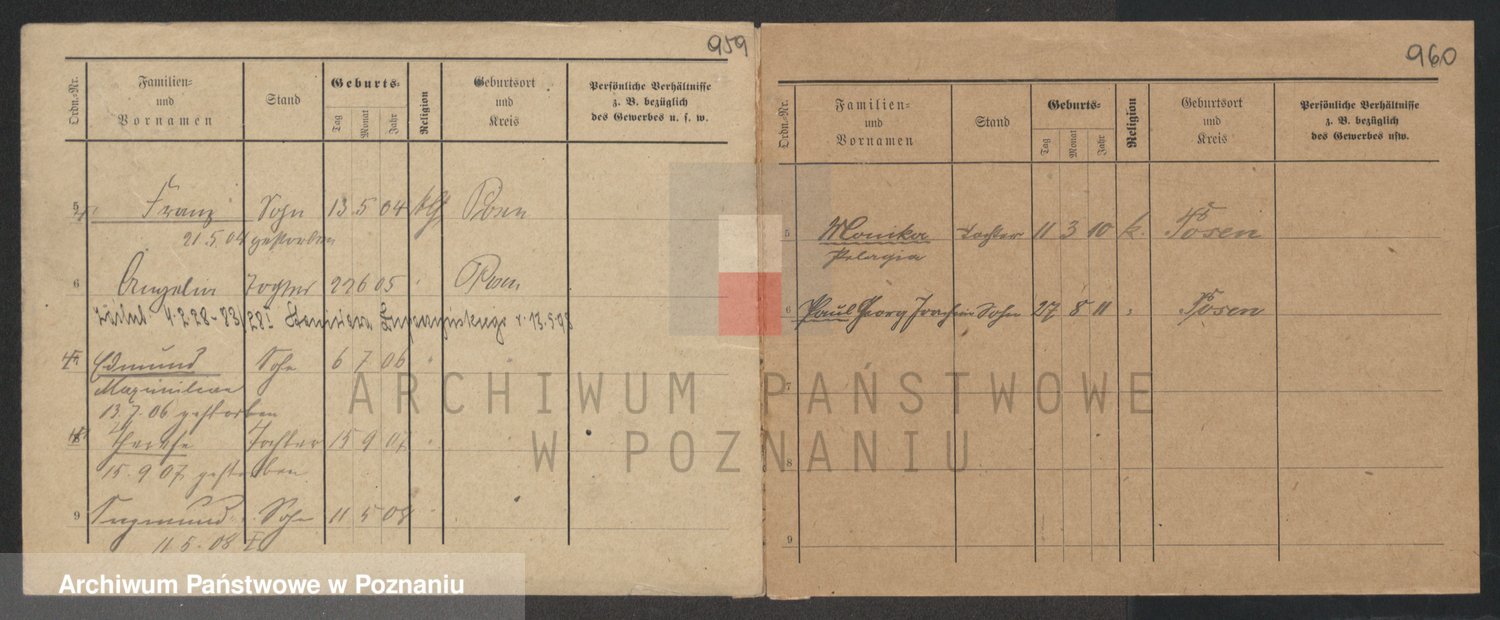 959
Ordn.-Nr.
Familien-
und
Vornamen
Stand
Geburts-
Tag
Monat
Jahr
Religion
Geburtsort
und
Kreis
Persönliche Verhältnisse
z. B. bezüglich
des Gewerbes u. s. w.
5 Franz Sohn 13 5 04 Posen
21.5.04 gestorben
6 Tochter 22 6 05 " Posen
Edmund Sohn 6 7 06 "
Maximilian
13.7.06 gestorben
Therese Tochter 15 9 07 "
15.9.07 gestorben
9 Sohn 11 5 08
11.5.08
960
Ordn.-Nr.
Familien-
und
Vornamen
Stand
Geburts-
Tag
Monat
Jahr
Religion
Geburtsort
und
Kreis
Persönliche Verhältnisse
z. B. bezüglich
des Gewerbes usw.
5 Monika Tochter 11 3 10 k. Posen
Pelagia
6 Paul Georg Joachim Sohn 27 8 11 " Posen
7
8
9
ARCHIWUM PAŃSTWOWE
W POZNANIU
Archiwum Państwowe w Poznaniu